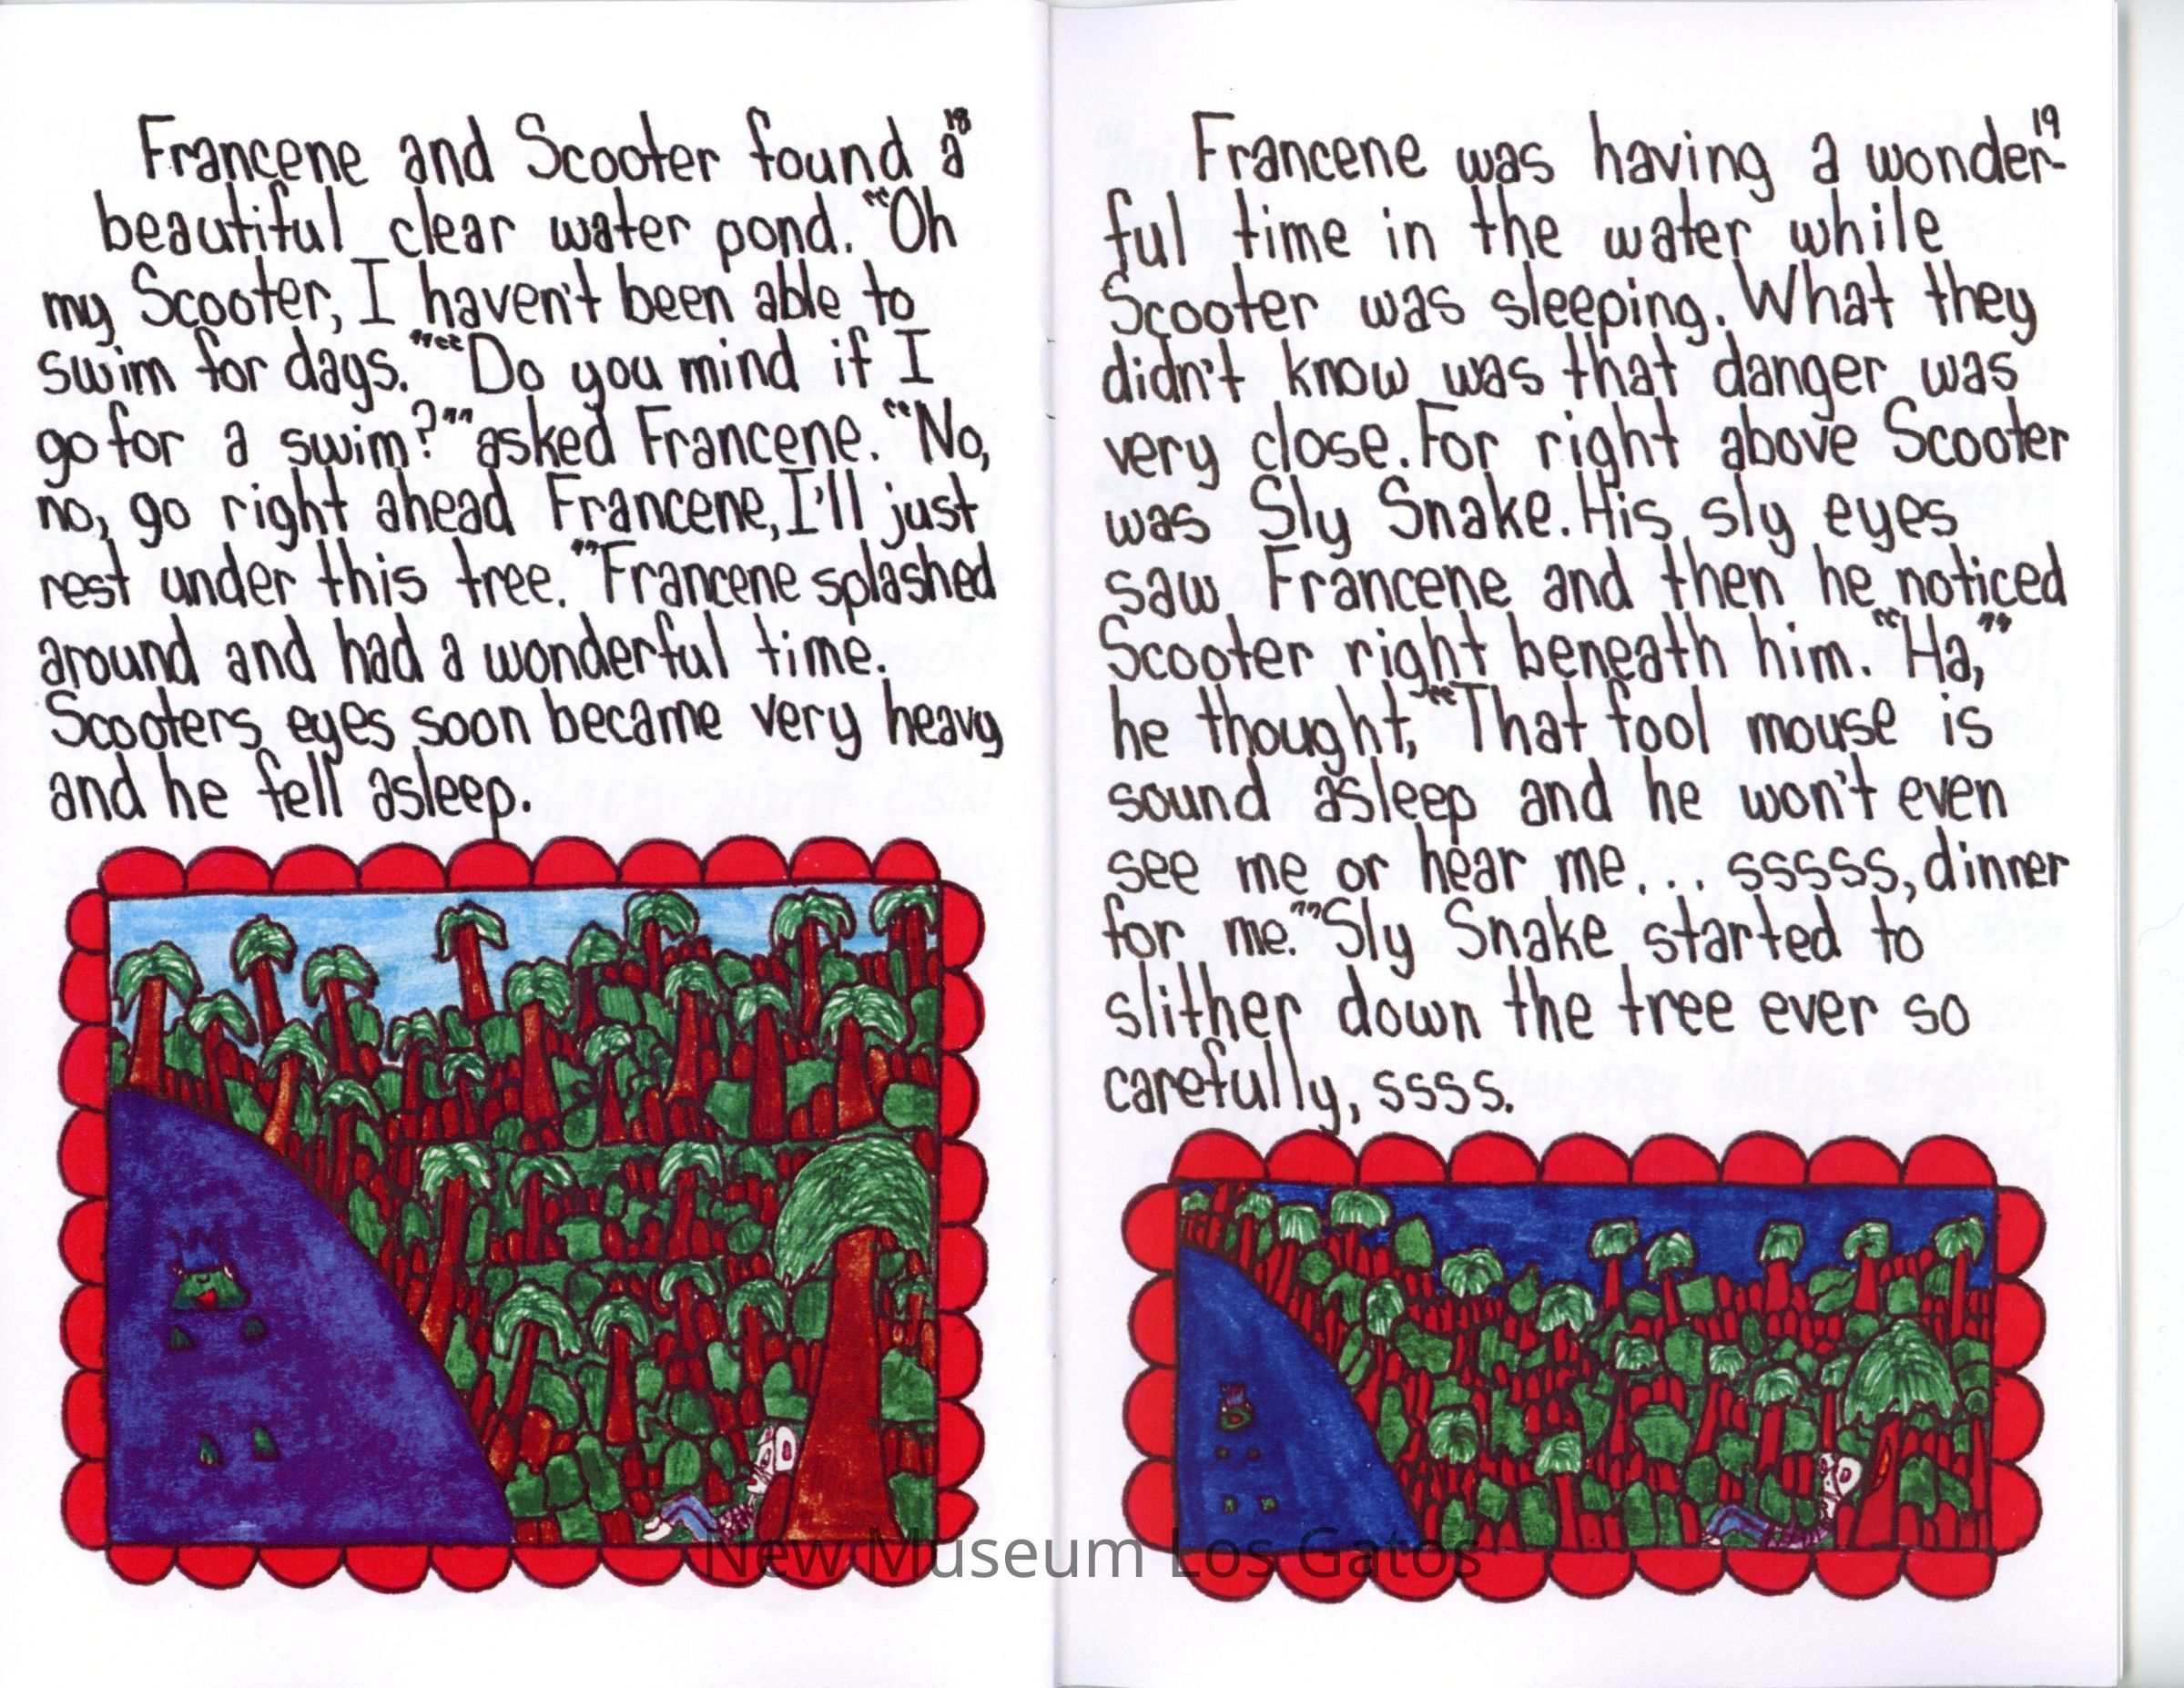 18
Francene and Scooter found a
beautiful clear water pond. "Oh
my Scooter, I haven't been able to
swim for days."" "Do you mind if I
go for a swim?"" asked Francene. "No,
no, go right ahead Francene, I'll just
rest under this tree." Francene splashed
around and had a wonderful time.
Scooters eyes soon became very heavy
and he fell asleep.
19
Francene was having a wonder-
ful time in the water while
Scooter was sleeping. What they
didn't know was that danger was
very close. For right above Scooter
was Sly Snake. His sly eyes
saw Francene and then he noticed
Scooter right beneath him. "Ha,"
he thought, "That fool mouse is
sound asleep and he won't even
see me or hear me... sssss, dinner
for me." Sly Snake started to
slither down the tree ever so
carefully, ssss.
New Museum Los Gatos